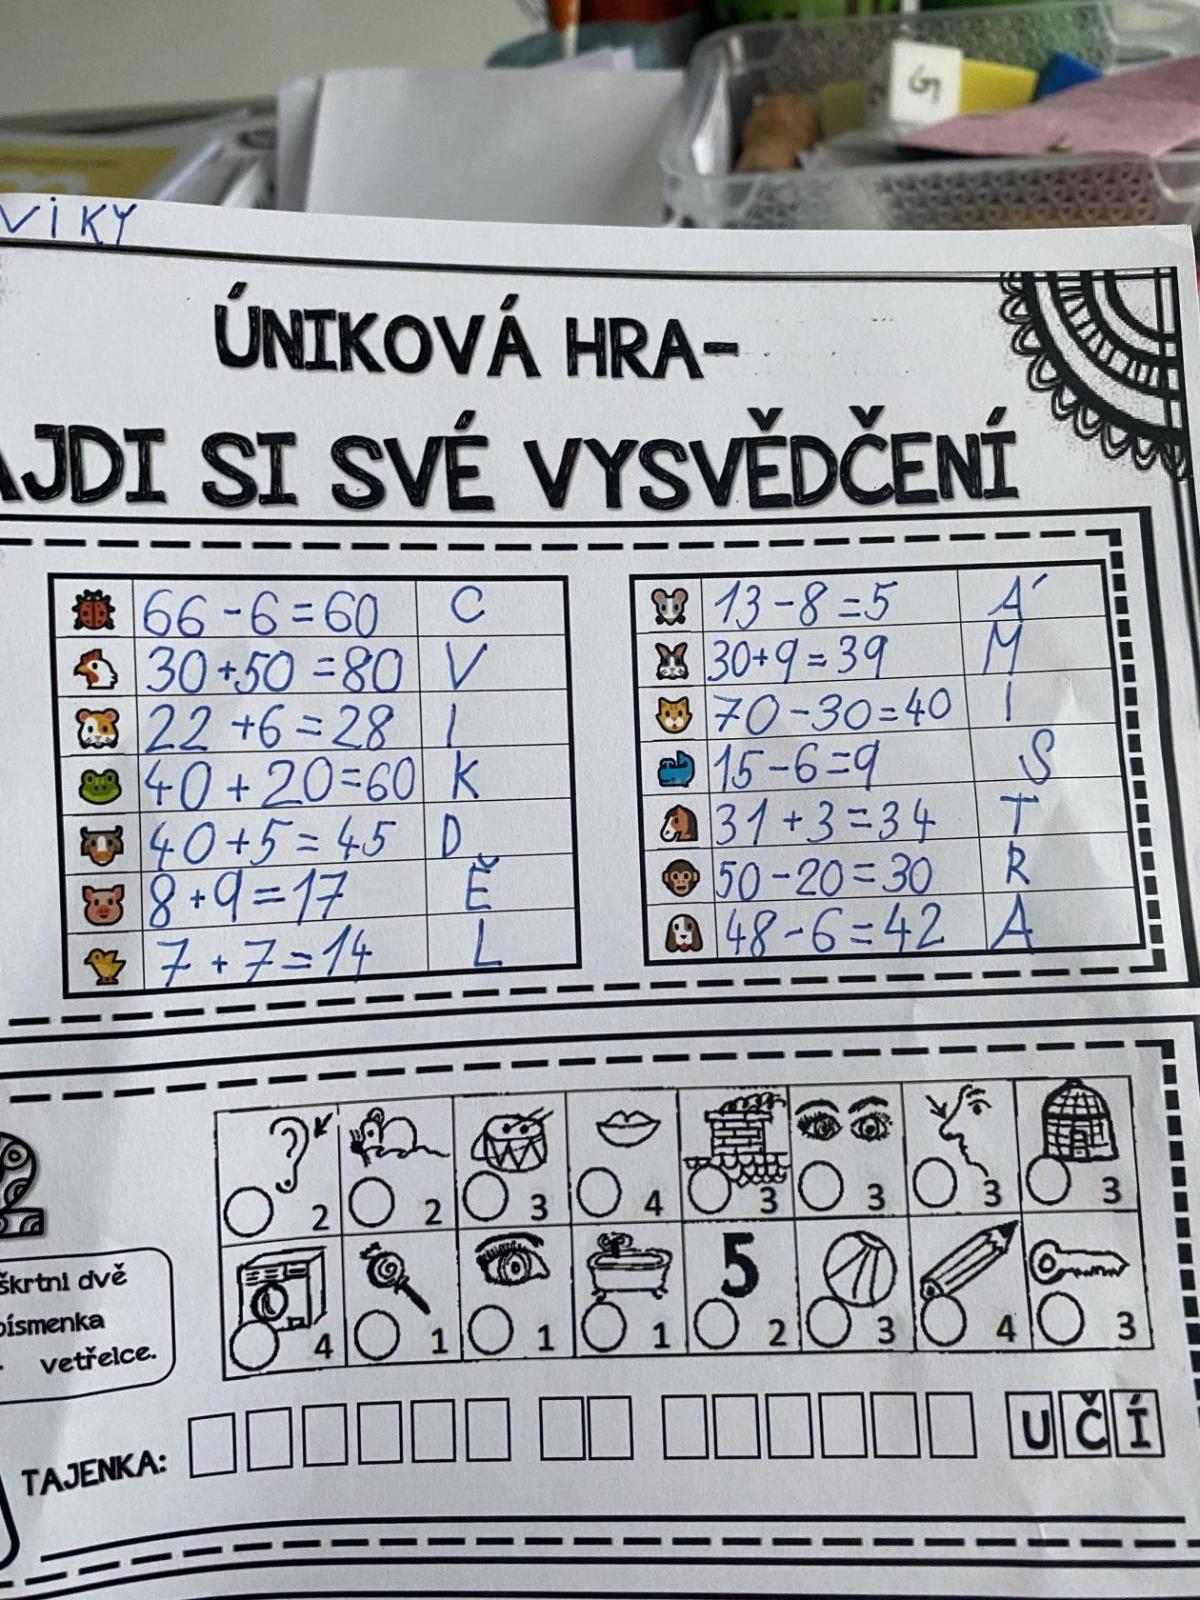 VIKY
ÚNIKOVÁ HRA-
AJDI SI SVÉ VYSVĚDČENÍ
66-6=60 C
30+50=80 V
22+6=28 I
40+20=60 K
40+5=45 D
8+9=17 Ě
7+7=14 L
13-8=5 Á
30+9=39 M
70-30=40 I
15-6=9 S
31+3=34 T
50-20=30 R
48-6=42 A
2 2 3 4 3 3 3 3
5
4 1 1 1 2 3 4 3
2
škrtni dvě
písmenka
vetřelce.
TAJENKA: U Č Í
G